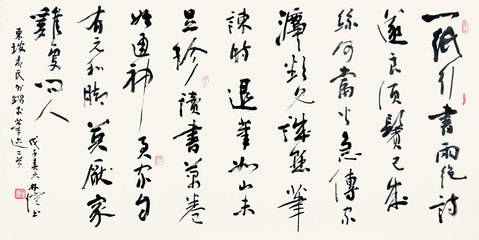 一紙行書兩絕詩
遂良須鬢已成
絲何當火急傳家
灋欲見誠懸筆
諫時退筆如山未
足珍讀書萬卷
始通神君家自
有元和脚莫厭家
雞更問人
東坡柳氏外甥求筆迹二首
戊子春 林 書